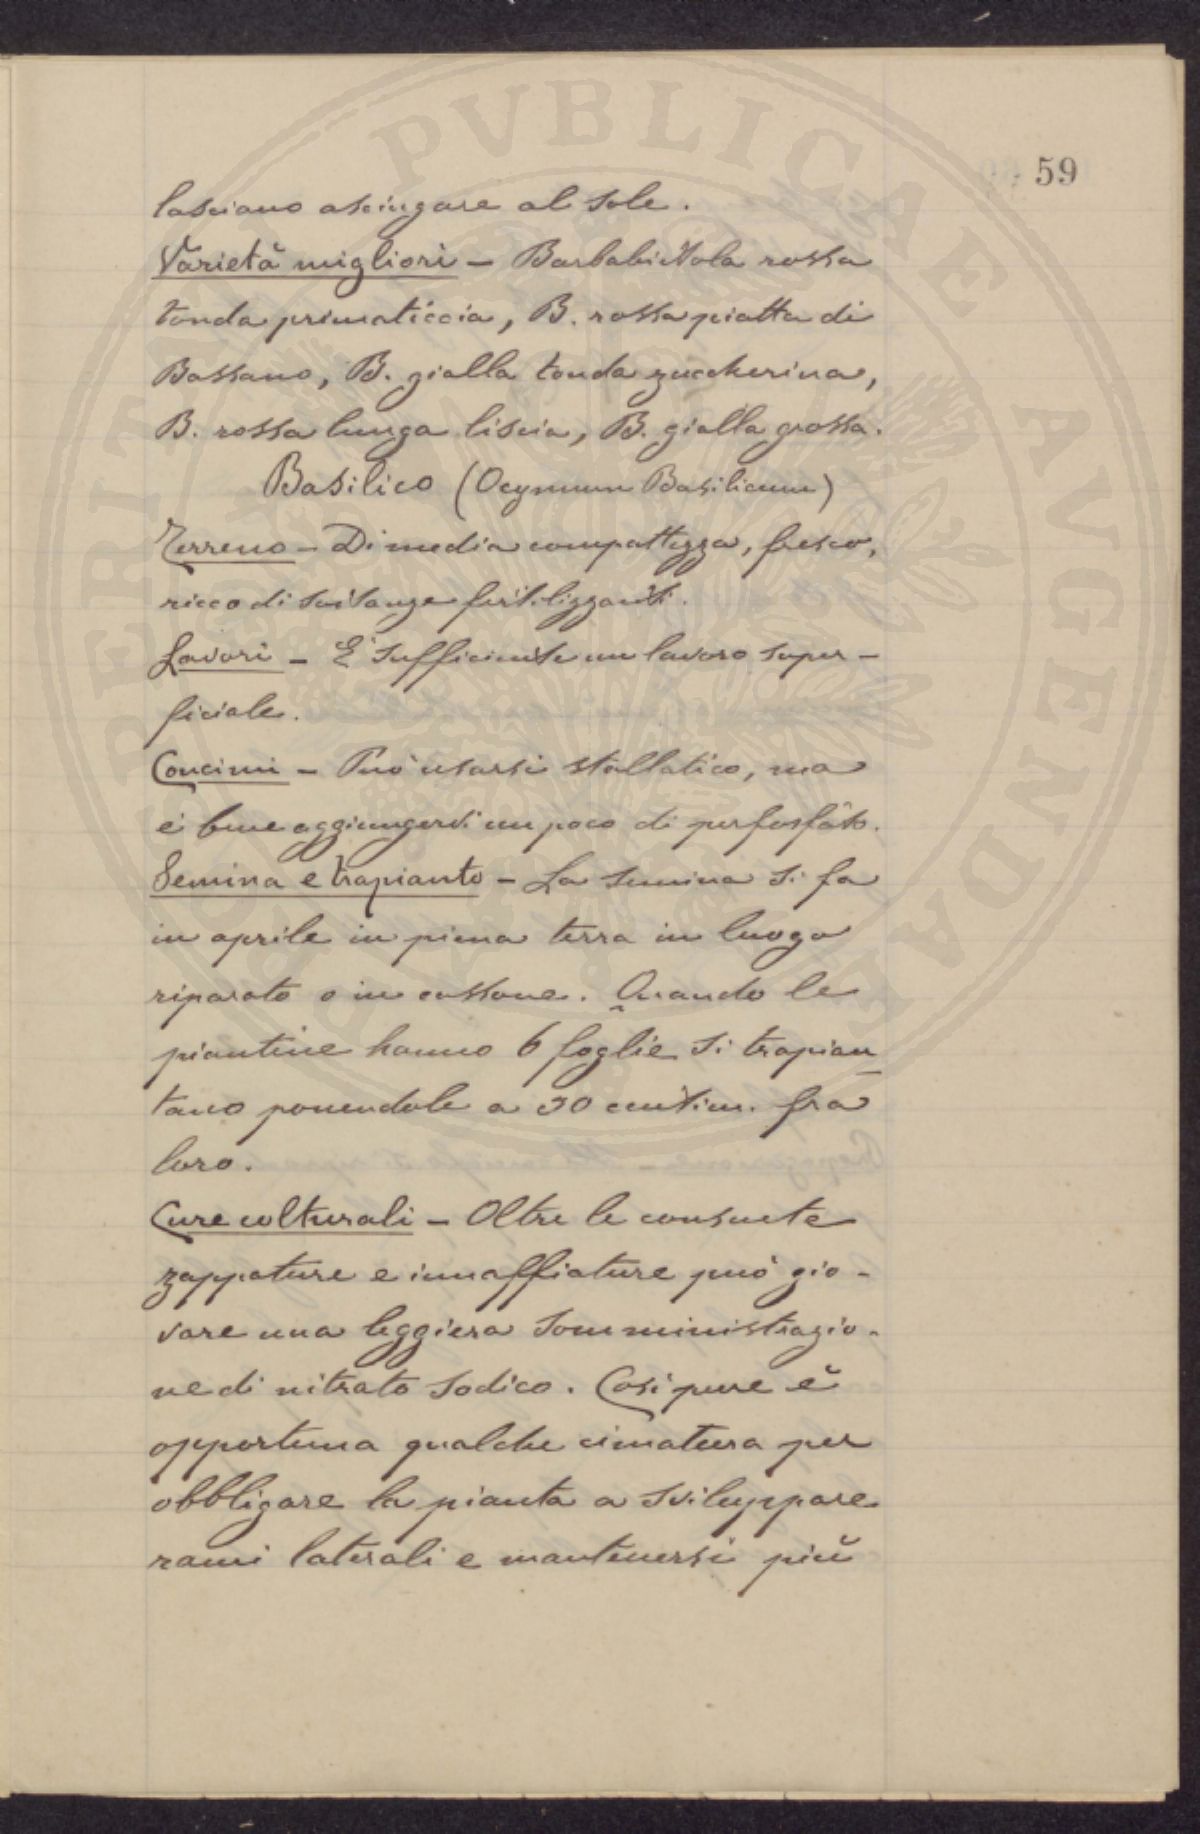 PROSPERITATI PVBLICAE AVGENDAE
59
lasciano asciugare al sole.
Varietà migliori – Barbabietola rossa
tonda primaticcia, B. rossa piatta di
Bassano, B. gialla tonda zuccherina,
B. rossa lunga liscia, B. gialla grossa.
Basilico (Ocymum Basilicum)
Terreno – Di media compattezza, fresco,
ricco di sostanze fertilizzanti.
Lavori – E' sufficiente un lavoro super–
ficiale.
Concimi – Può usarsi stallatico, ma
è bene aggiungervi un poco di perfosfato.
Semina e trapianto – La semina si fa
in aprile in piena terra in luogo
riparato o in cassone. Quando le
piantine hanno 6 foglie si trapian
tano ponendole a 30 centim. fra
loro.
Cure colturali – Oltre le consuete
zappature e innaffiature può gio-
vare una leggiera somministrazio-
ne di nitrato sodico. Così pure è
opportuna qualche cimatura per
obbligare la pianta a sviluppare
rami laterali e mantenersi più